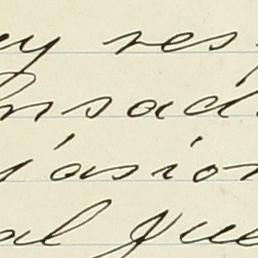 ey res
nsad
asion
al que